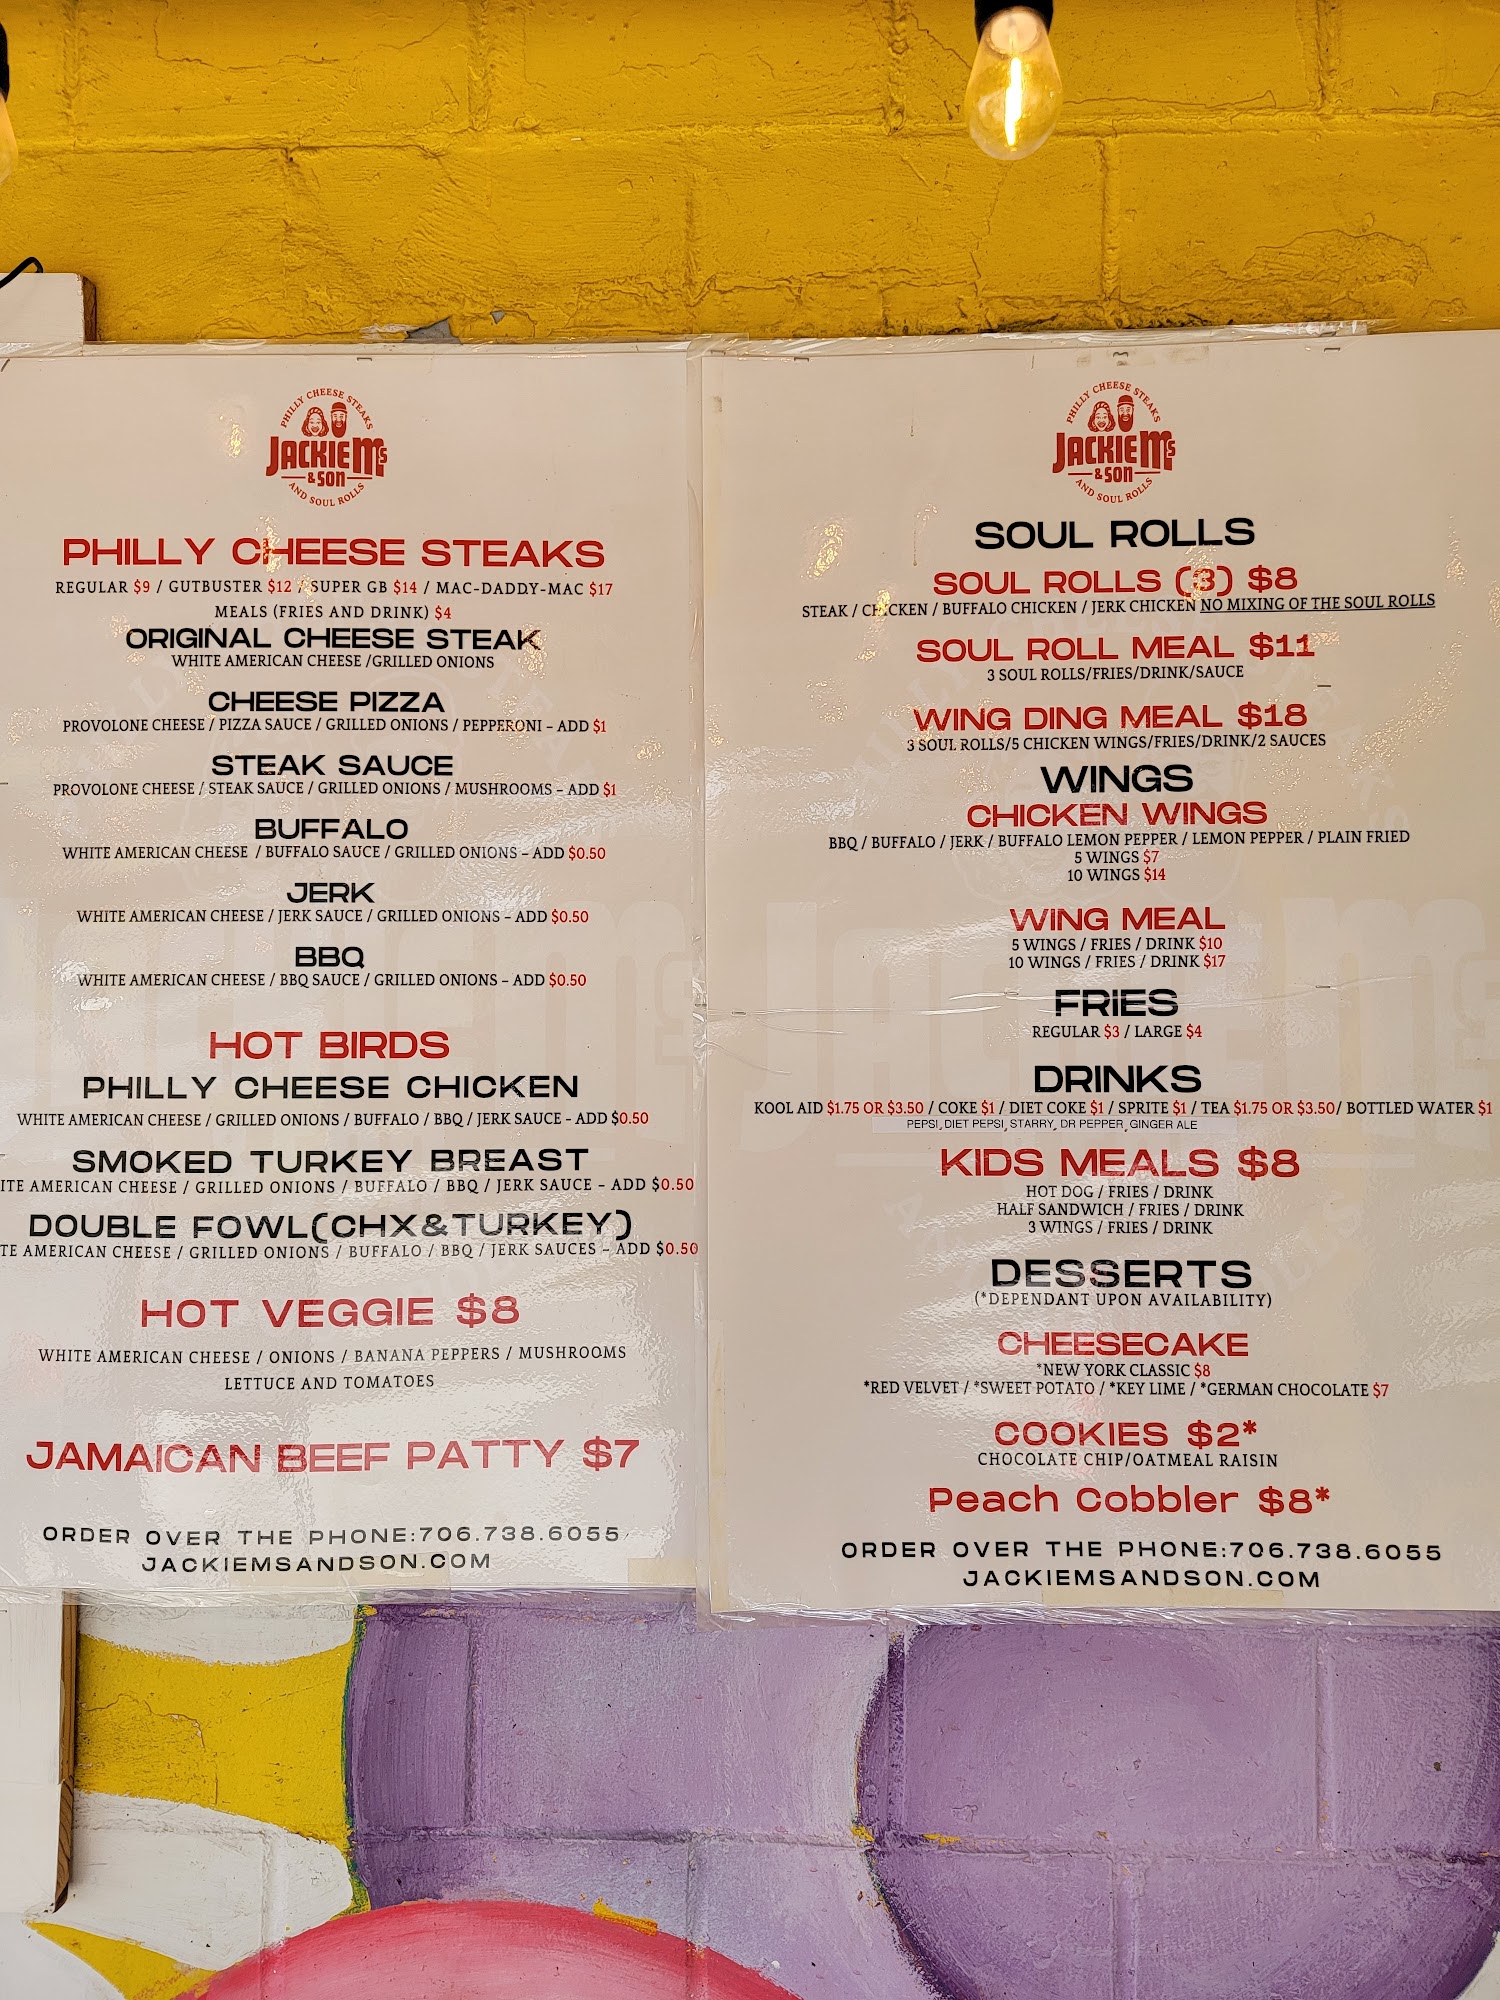 PHILLY CHEESE STEAKS
JACKIE M's
& SON
AND SOUL ROLLS
PHILLY CHEESE STEAKS
REGULAR $9 / GUTBUSTER $12 / SUPER GB $14 / MAC-DADDY-MAC $17
MEALS (FRIES AND DRINK) $4
ORIGINAL CHEESE STEAK
WHITE AMERICAN CHEESE /GRILLED ONIONS
CHEESE PIZZA
PROVOLONE CHEESE / PIZZA SAUCE / GRILLED ONIONS / PEPPERONI – ADD $1
STEAK SAUCE
PROVOLONE CHEESE / STEAK SAUCE / GRILLED ONIONS / MUSHROOMS – ADD $1
BUFFALO
WHITE AMERICAN CHEESE / BUFFALO SAUCE / GRILLED ONIONS – ADD $0.50
JERK
WHITE AMERICAN CHEESE / JERK SAUCE / GRILLED ONIONS – ADD $0.50
BBQ
WHITE AMERICAN CHEESE / BBQ SAUCE / GRILLED ONIONS – ADD $0.50
HOT BIRDS
PHILLY CHEESE CHICKEN
WHITE AMERICAN CHEESE / GRILLED ONIONS / BUFFALO / BBQ / JERK SAUCE – ADD $0.50
SMOKED TURKEY BREAST
ITE AMERICAN CHEESE / GRILLED ONIONS / BUFFALO / BBQ / JERK SAUCE – ADD $0.50
DOUBLE FOWL(CHX&TURKEY)
TE AMERICAN CHEESE / GRILLED ONIONS / BUFFALO / BBQ / JERK SAUCES – ADD $0.50
HOT VEGGIE $8
WHITE AMERICAN CHEESE / ONIONS / BANANA PEPPERS / MUSHROOMS
LETTUCE AND TOMATOES
JAMAICAN BEEF PATTY $7
ORDER OVER THE PHONE:706.738.6055
JACKIEMSANDSON.COM
PHILLY CHEESE STEAKS
JACKIE M's
& SON
AND SOUL ROLLS
SOUL ROLLS
SOUL ROLLS (3) $8
STEAK / CHICKEN / BUFFALO CHICKEN / JERK CHICKEN NO MIXING OF THE SOUL ROLLS
SOUL ROLL MEAL $11
3 SOUL ROLLS/FRIES/DRINK/SAUCE
WING DING MEAL $18
3 SOUL ROLLS/5 CHICKEN WINGS/FRIES/DRINK/2 SAUCES
WINGS
CHICKEN WINGS
BBQ / BUFFALO / JERK / BUFFALO LEMON PEPPER / LEMON PEPPER / PLAIN FRIED
5 WINGS $7
10 WINGS $14
WING MEAL
5 WINGS / FRIES / DRINK $10
10 WINGS / FRIES / DRINK $17
FRIES
REGULAR $3 / LARGE $4
DRINKS
KOOL AID $1.75 OR $3.50 / COKE $1 / DIET COKE $1 / SPRITE $1 / TEA $1.75 OR $3.50/ BOTTLED WATER $1
PEPSI, DIET PEPSI, STARRY, DR PEPPER, GINGER ALE
KIDS MEALS $8
HOT DOG / FRIES / DRINK
HALF SANDWICH / FRIES / DRINK
3 WINGS / FRIES / DRINK
DESSERTS
(*DEPENDANT UPON AVAILABILITY)
CHEESECAKE
*NEW YORK CLASSIC $8
*RED VELVET / *SWEET POTATO / *KEY LIME / *GERMAN CHOCOLATE $7
COOKIES $2*
CHOCOLATE CHIP/OATMEAL RAISIN
Peach Cobbler $8*
ORDER OVER THE PHONE:706.738.6055
JACKIEMSANDSON.COM